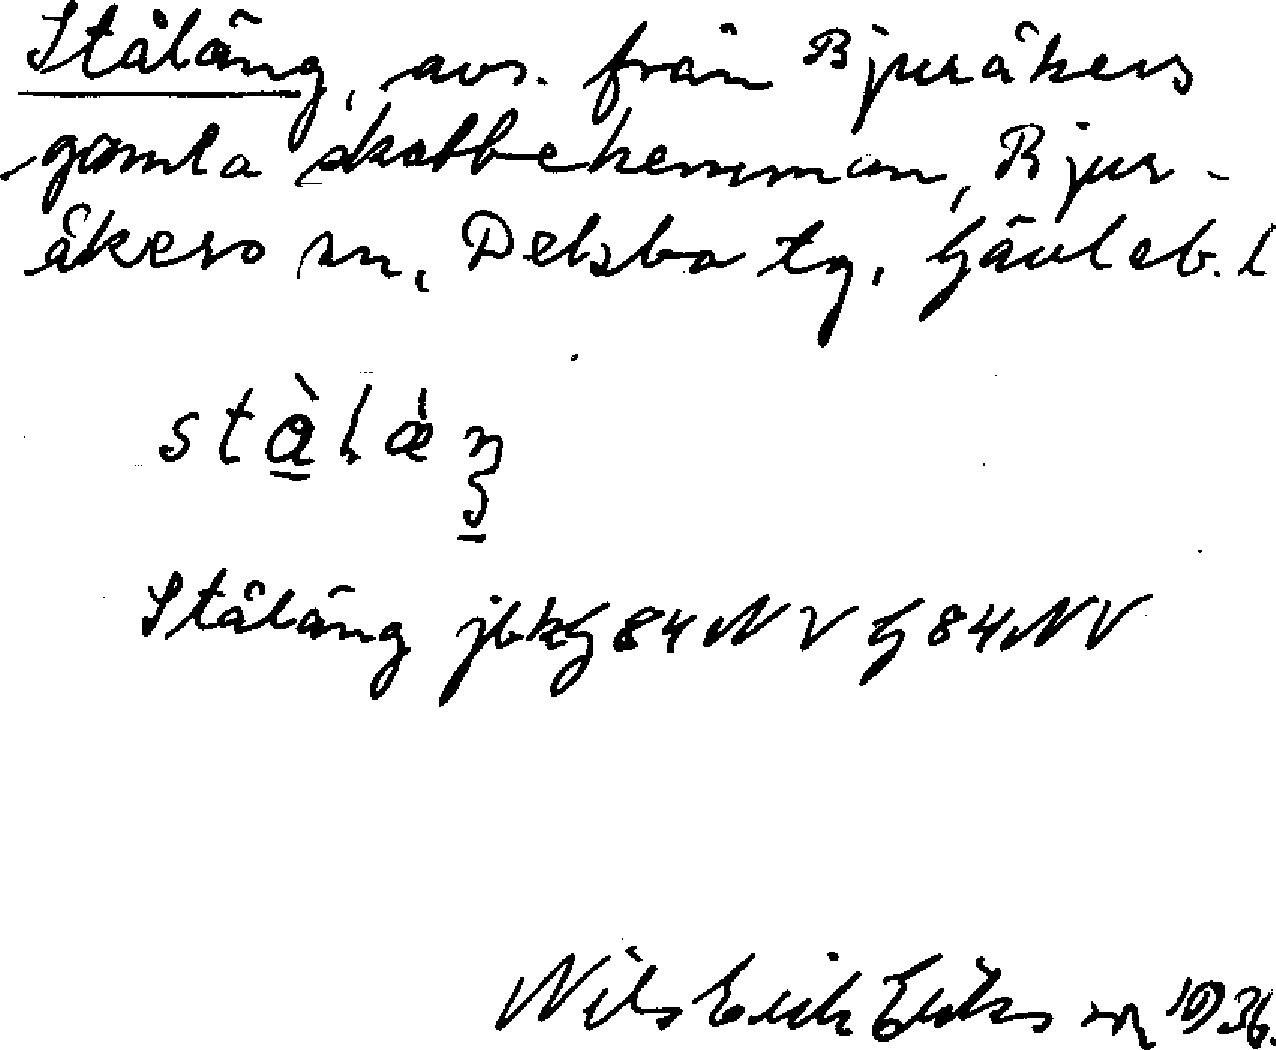 Ståläng, avs. från Bjuråkers
gamla skattehemman, Bjur-
åkers sn, Delsbo tg, Gävleb. l
stàlǽŋ
Ståläng jbkG84NV G84NV
Nils Erik Eriksson 1936.